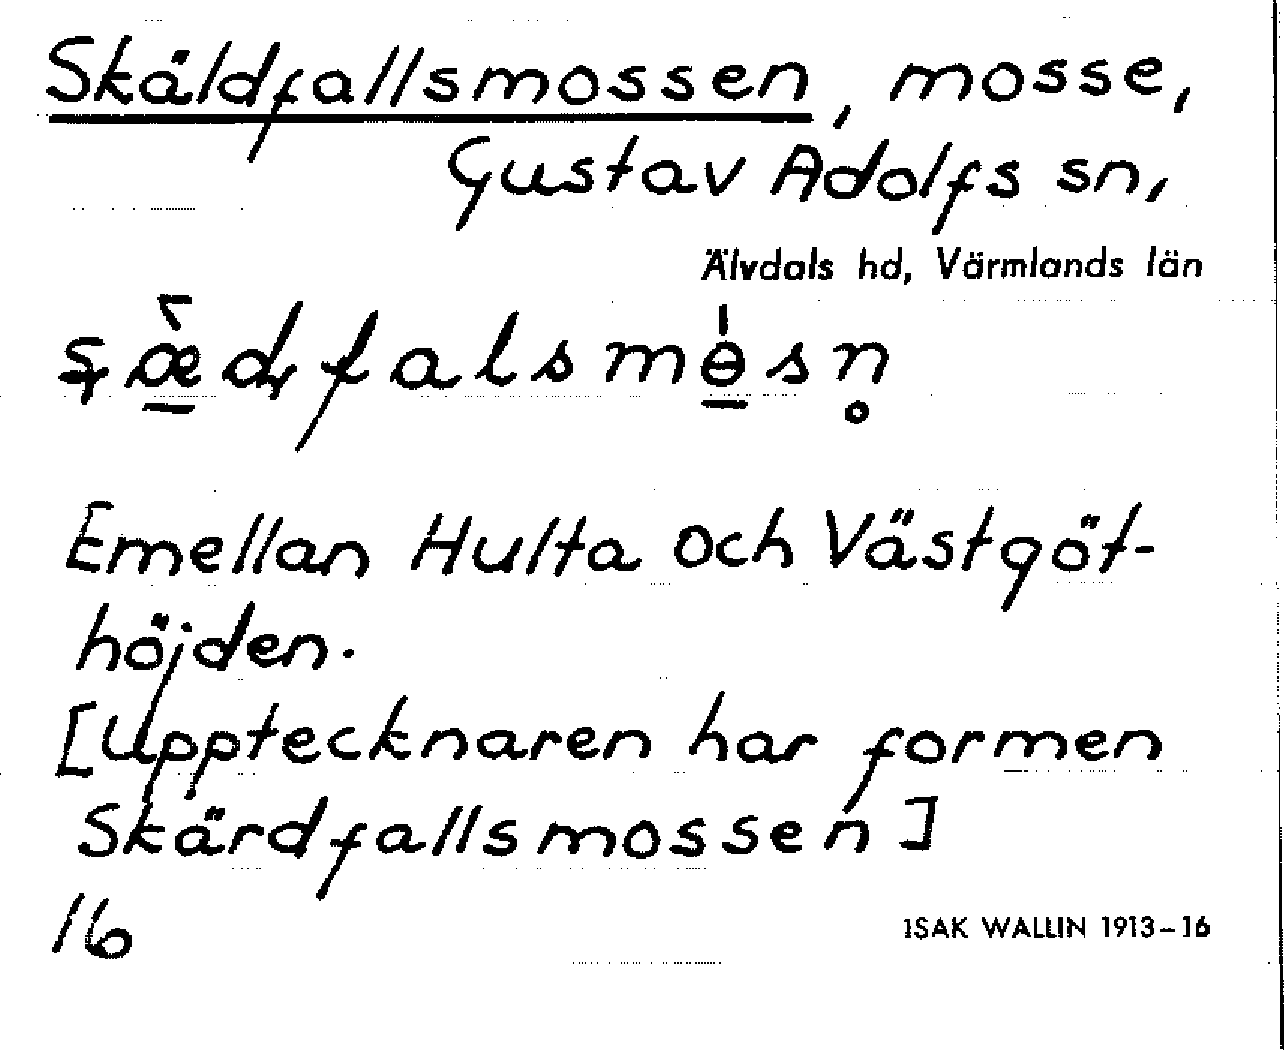 Skäldfallsmossen, mosse,
Gustav Adolfs sn,
Älvdals hd, Värmlands län
ʂæ̀ɖfalsmɵ̍sn̥
Emellan Hulta och Västgöt-
höjden.
[Upptecknaren har formen
Skärdfallsmossen]
16
ISAK WALLIN 1913-16